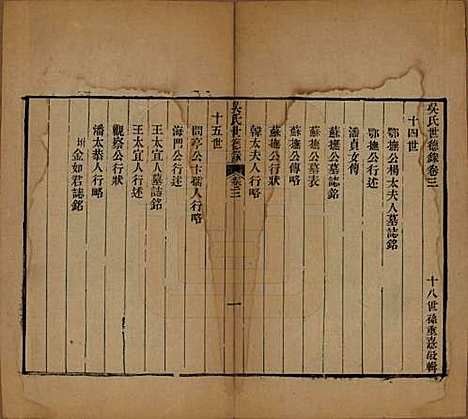 吳氏世德錄卷三
十八世孫重憙敬輯
十四世
鄂撫公楊太夫人墓誌銘
鄂撫公行述
潘貞女傳
蘇撫公墓誌銘
蘇撫公墓表
蘇撫公傳略
韓太夫人行略
吳氏世德錄
卷三
一
十五世
問亭公卞孺人行略
海門公行述
王太宜人墓誌銘
王太宜人行述
觀察公行狀
潘太恭人行略
坿金如君誌銘